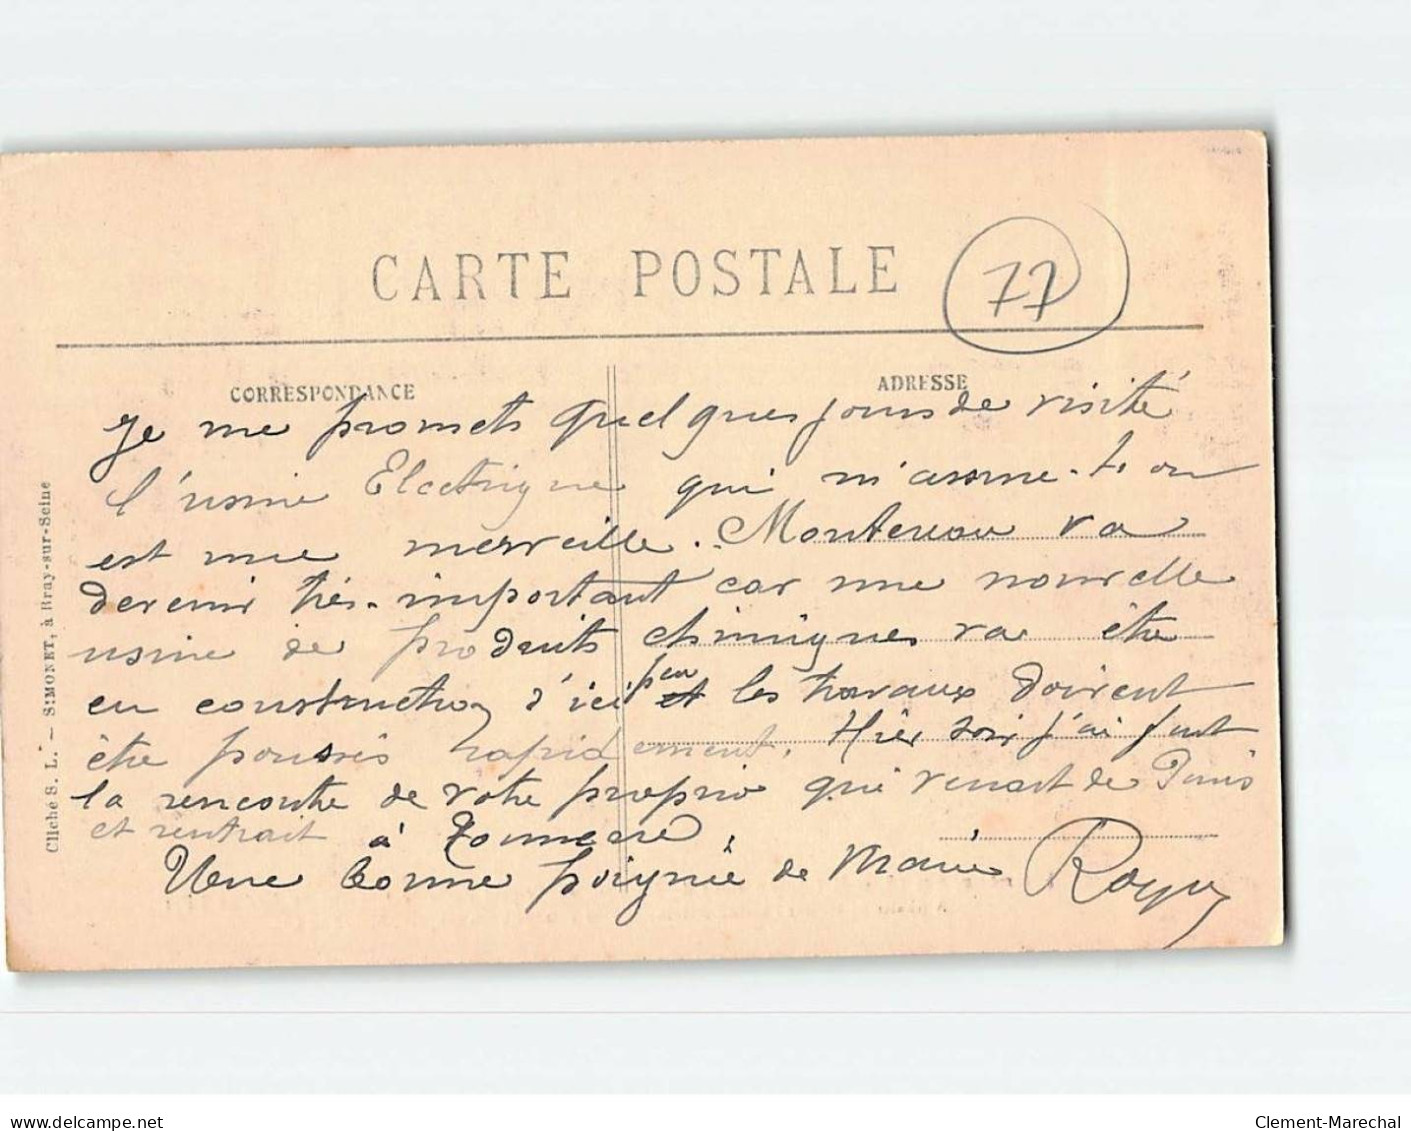 CARTE POSTALE
77
CORRESPONDANCE
ADRESSE
Je me promets quelques jours de visité
l'usine Electrique qui m'assure-t-on
est une merveille. Montereau va
devenir très-important car une nouvelle
usine de produits chimiques va être
en construction d'ici peu et les travaux doivent
être poussés rapidement. Hier soir j'ai fait
la rencontre de votre proprio qui venait de Paris
et rentrait à Tonnerre.
Une bonne poignée de main Roy
Cliché S. L. — SIMONET, à Bray-sur-Seine
www.delcampe.net
Clement-Marechal